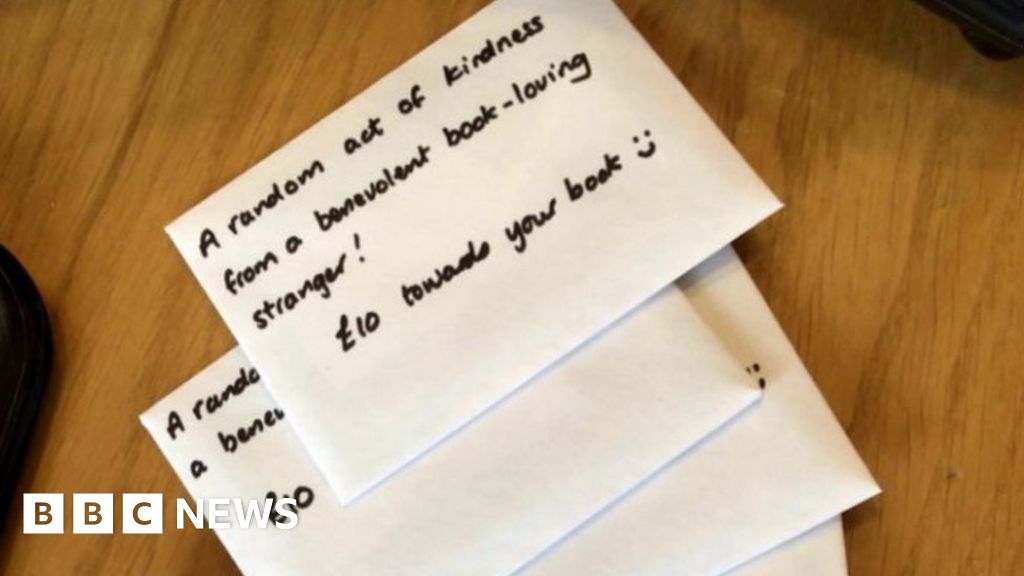 A random act of kindness
from a benevolent book-loving
stranger!
£10 towards your book :)
A
a
BBC NEWS